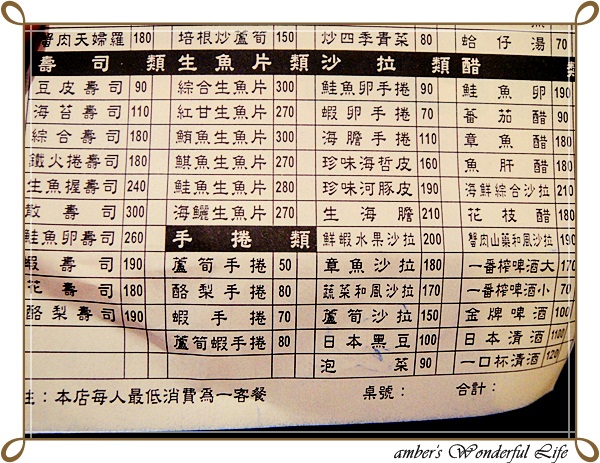 蟹肉天婦羅 180 培根炒蘆筍 150 炒四季青菜 80 蛤仔湯 70
壽司類 生魚片類 沙拉類 醋類
豆皮壽司 90 綜合生魚片 300 鮭魚卵手捲 90 鮭魚卵 190
海苔壽司 110 紅甘生魚片 270 蝦卵手捲 70 蕃茄醋 90
綜合壽司 180 鮪魚生魚片 300 海膽手捲 110 章魚醋 180
鐵火捲壽司 210 鯕魚生魚片 270 珍味海哲皮 160 魚肝醋 180
生魚握壽司 240 鮭魚生魚片 280 珍味河豚皮 190 海鮮綜合沙拉 210
散壽司 300 海鱺生魚片 270 生海膽 210 花枝醋 180
鮭魚卵壽司 260 手捲類 鮮蝦水果沙拉 200 蟹肉山藥和風沙拉 190
蝦壽司 190 蘆筍手捲 50 章魚沙拉 180 一番榨啤酒大 170
花壽司 180 酪梨手捲 80 蔬菜和風沙拉 170 一番榨啤酒小 70
酪梨壽司 190 蝦手捲 70 蘆筍沙拉 150 金牌啤酒 100
蘆筍蝦手捲 80 日本黑豆 100 日本清酒 1100
泡菜 90 一口杯清酒 120
注：本店每人最低消費為一客餐 桌號： 合計：
amber's Wonderful Life